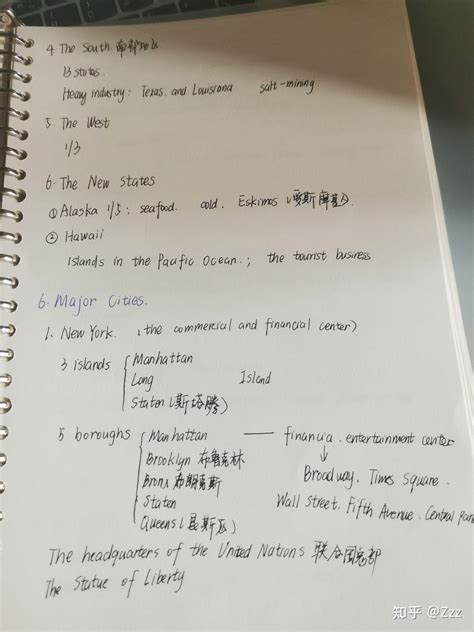 4 The South 南部地区
13 states.
Heavy industry: Texas. and Louisiana salt-mining
5. The West
1/3
6. The New States
① Alaska 1/5: seafood. cold. Eskimos (爱斯摩基)
② Hawaii
Islands in the Pacific Ocean.; the tourist business
6. Major Cities.
1. New York. (the commercial and financial center)
3 islands { Manhattan
Long Island
Staten (斯塔腾)
5 boroughs { Manhattan — financia. entertainment center
Brooklyn 布鲁克林 ↓ Broadway. Times Square.
Bronx 布朗克斯 Wall Street. Fifth Avenue. Central Par
Staten
Queens (昆斯区)
The headquarters of the United Nations 联合国总部
The Statue of Liberty
知乎 @Zzz